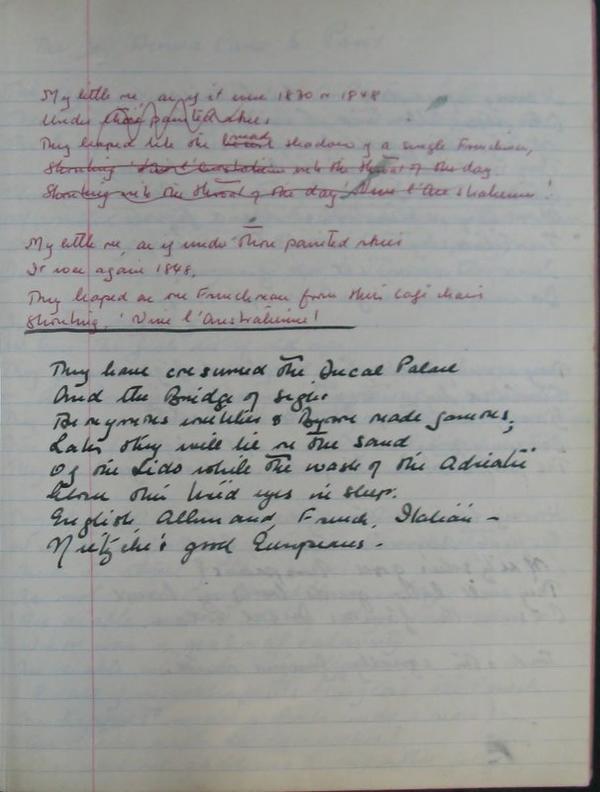 My little one, as if it were 1830 or 1848
Under those painted skies
They leaped like the mad shadow of a single Frenchman,
Shouting with the throat of the day
Shouting with the throat of the day 'Vive l'Australienne!
My little one, as if under those painted skies
It was again 1848,
They leaped as one Frenchman from their café chairs
Shouting, 'Vive l'Australienne!
They have consumed the Ducal Palace
And the Bridge of Sighs
Byron made famous,
Later they will lie on the sand
Of the Lido while the wash of the Adriatic
their tired eyes in sleep.
English, Allemand, French, Italian –
Nietzche's good Europeans.